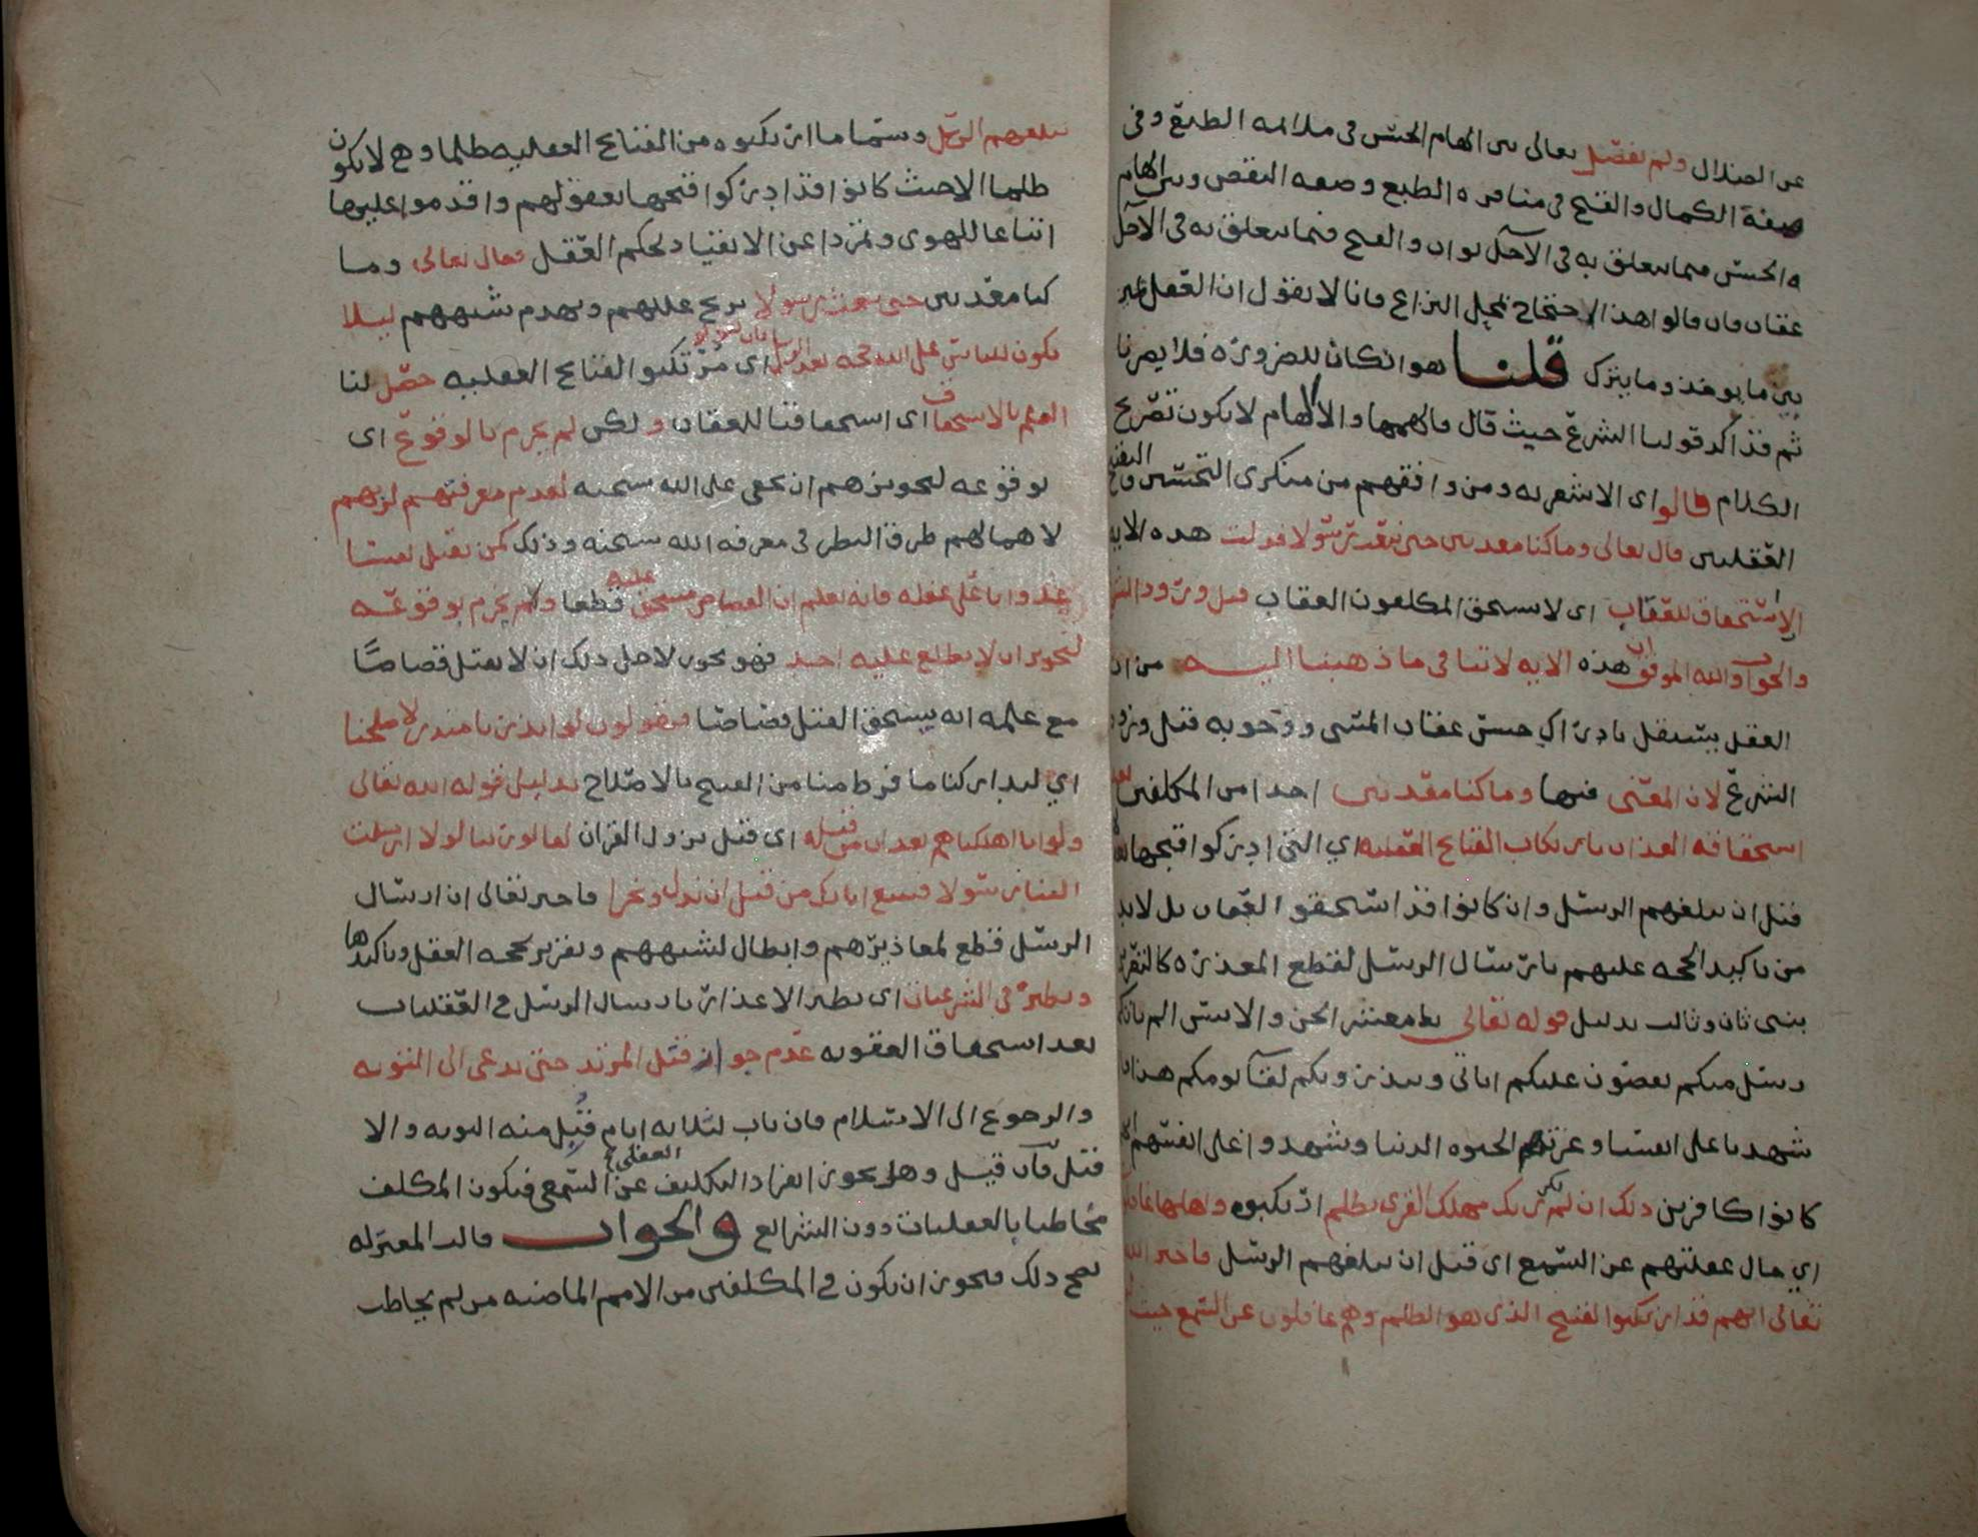 عن الضلال ولم يفصل تعالى بين الهام الحسن في ملائمة الطبع وفي
صفة الكمال والقبح في منافرة الطبع وصفة النقص وبين الهام
الحسن فيما يتعلق به في الآجل ثواب والقبح فيما يتعلق به في الآجل
عقاب فان قالوا هذا الاحتجاج بمحل النزاع فانا لا نقول ان العقل غير
بين ما يوخذ وما يترك قلنا هو انكار للضرورة فلا يضرنا
ثم قد اكد قولنا الشرع حيث قال فالهمها والالهام لا يكون تصريح
الكلام قالوا اي الاشعرية ومن وافقهم من منكري التحسين والتقبيح
العقليين قال تعالى وما كنا معذبين حتى نبعث رسولا فدلت هذه الاية
الاستحقاق للعقاب اي لا يستحق المكلفون العقاب قبل ورود الشرع
والجواب والله الموفق ان هذه الاية لا تنافي ما ذهبنا اليه من ان
العقل يستقل بادراك حسن عقاب المسي ووجوبه قبل ورود
الشرع لان المعنى فيها وما كنا معذبين احدا من المكلفين بعد
استحقاقه العذاب بارتكاب القبائح العقلية اي التي ادركوا قبحها
قبل ان تبلغهم الرسل وان كانوا قد استحقوا العقاب بل لا بد
من تاكيد الحجة عليهم بارسال الرسل لقطع المعذرة كالتقرير
بنبي ثان وثالث بدليل قوله تعالى يا معشر الجن والانس الم ياتكم
رسل منكم يقصون عليكم اياتي وينذرونكم لقآ يومكم هذا
شهدنا على انفسنا وغرتهم الحيوة الدنيا وشهدوا على انفسهم انهم
كانوا كافرين ذلك ان لم يكن ربك مهلك القرى بظلم ارتكبوه واهلها غافلون
اي حال غفلتهم عن السمع اي قبل ان تبلغهم الرسل فاخبر الله
تعالى انهم قد ارتكبوا القبيح الذي هو الظلم وهم غافلون عن السمع حيث
تبلغهم الرسل وسمى ما ارتكبوه من القبائح العقلية ظلما وهي لا يكون
ظلما الا حيث كانوا قد ادركوا قبحها بعقولهم واقدموا عليها
اتباعا للهوى وتمردا عن الانقياد لحكم العقل فقال تعالى وما
كنا معذبين حتى نبعث رسولا يزيح عللهم ويهدم شبههم ليلا
يكون للناس على الله حجة بعد الرسل اي مرتكبوا القبائح العقلية حصل لنا
العلم بالاستحقاق اي استحقاقنا للعقاب ولكن لم نجزم بالوقوع اي
بوقوعه لتجويزهم ان يخفى على الله سبحنه لعدم معرفتهم لربهم
لاهمالهم طرق النظر في معرفة الله سبحنه وذلك كمن يقتل نفسا
عدوانا على غفلة فانه يعلم ان القصاص مستحق عليه قطعا ولم يجزم بوقوعه
لتجويز ان لا يطلع عليه احد فهو يجوز لاجل ذلك ان لا يقتل قصاصًا
مع علمه انه يستحق القتل قصاصا فيقولون لو انذرنا منذر لاصلحنا
اي لتداركنا ما فرط منا من القبيح بالاصلاح بدليل قوله الله تعالى
ولو انا اهلكناهم بعذاب من قبله اي قبل نزول القران لقالوا ربنا لولا ارسلت
الينا رسولا فنتبع اياتك من قبل ان نذل ونخزى فاخبر تعالى ان ارسال
الرسل قطع لمعاذيرهم وابطال لشبههم وتقرير لحجة العقل وتاكيدها
ونظيره في الشرعيات اي نظير الاعذار بارسال الرسل في العقليات
بعد استحقاق العقوبة عدم جواز قتل المرتد حتى يدعى الى التوبه
والرجوع الى الاسلام فان تاب لثلاثه ايام قبل منه التوبه والا
قتل فان قيل وهل يجوز انفراد التكليف العقلي عن السمعي فيكون المكلف
مخاطبا بالعقليات دون الشرائع والجواب قالت المعتزله
يصح ذلك فيجوز ان يكون في المكلفين من الامم الماضيه من لم يخاطب